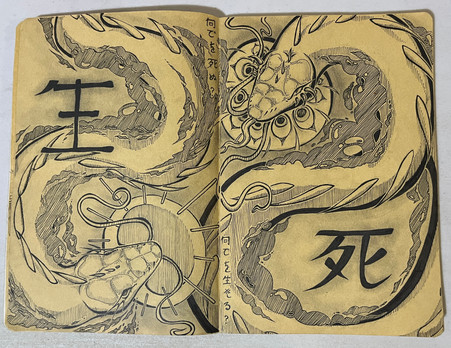 生
何でを死ぬ?
何でを生きる?
死